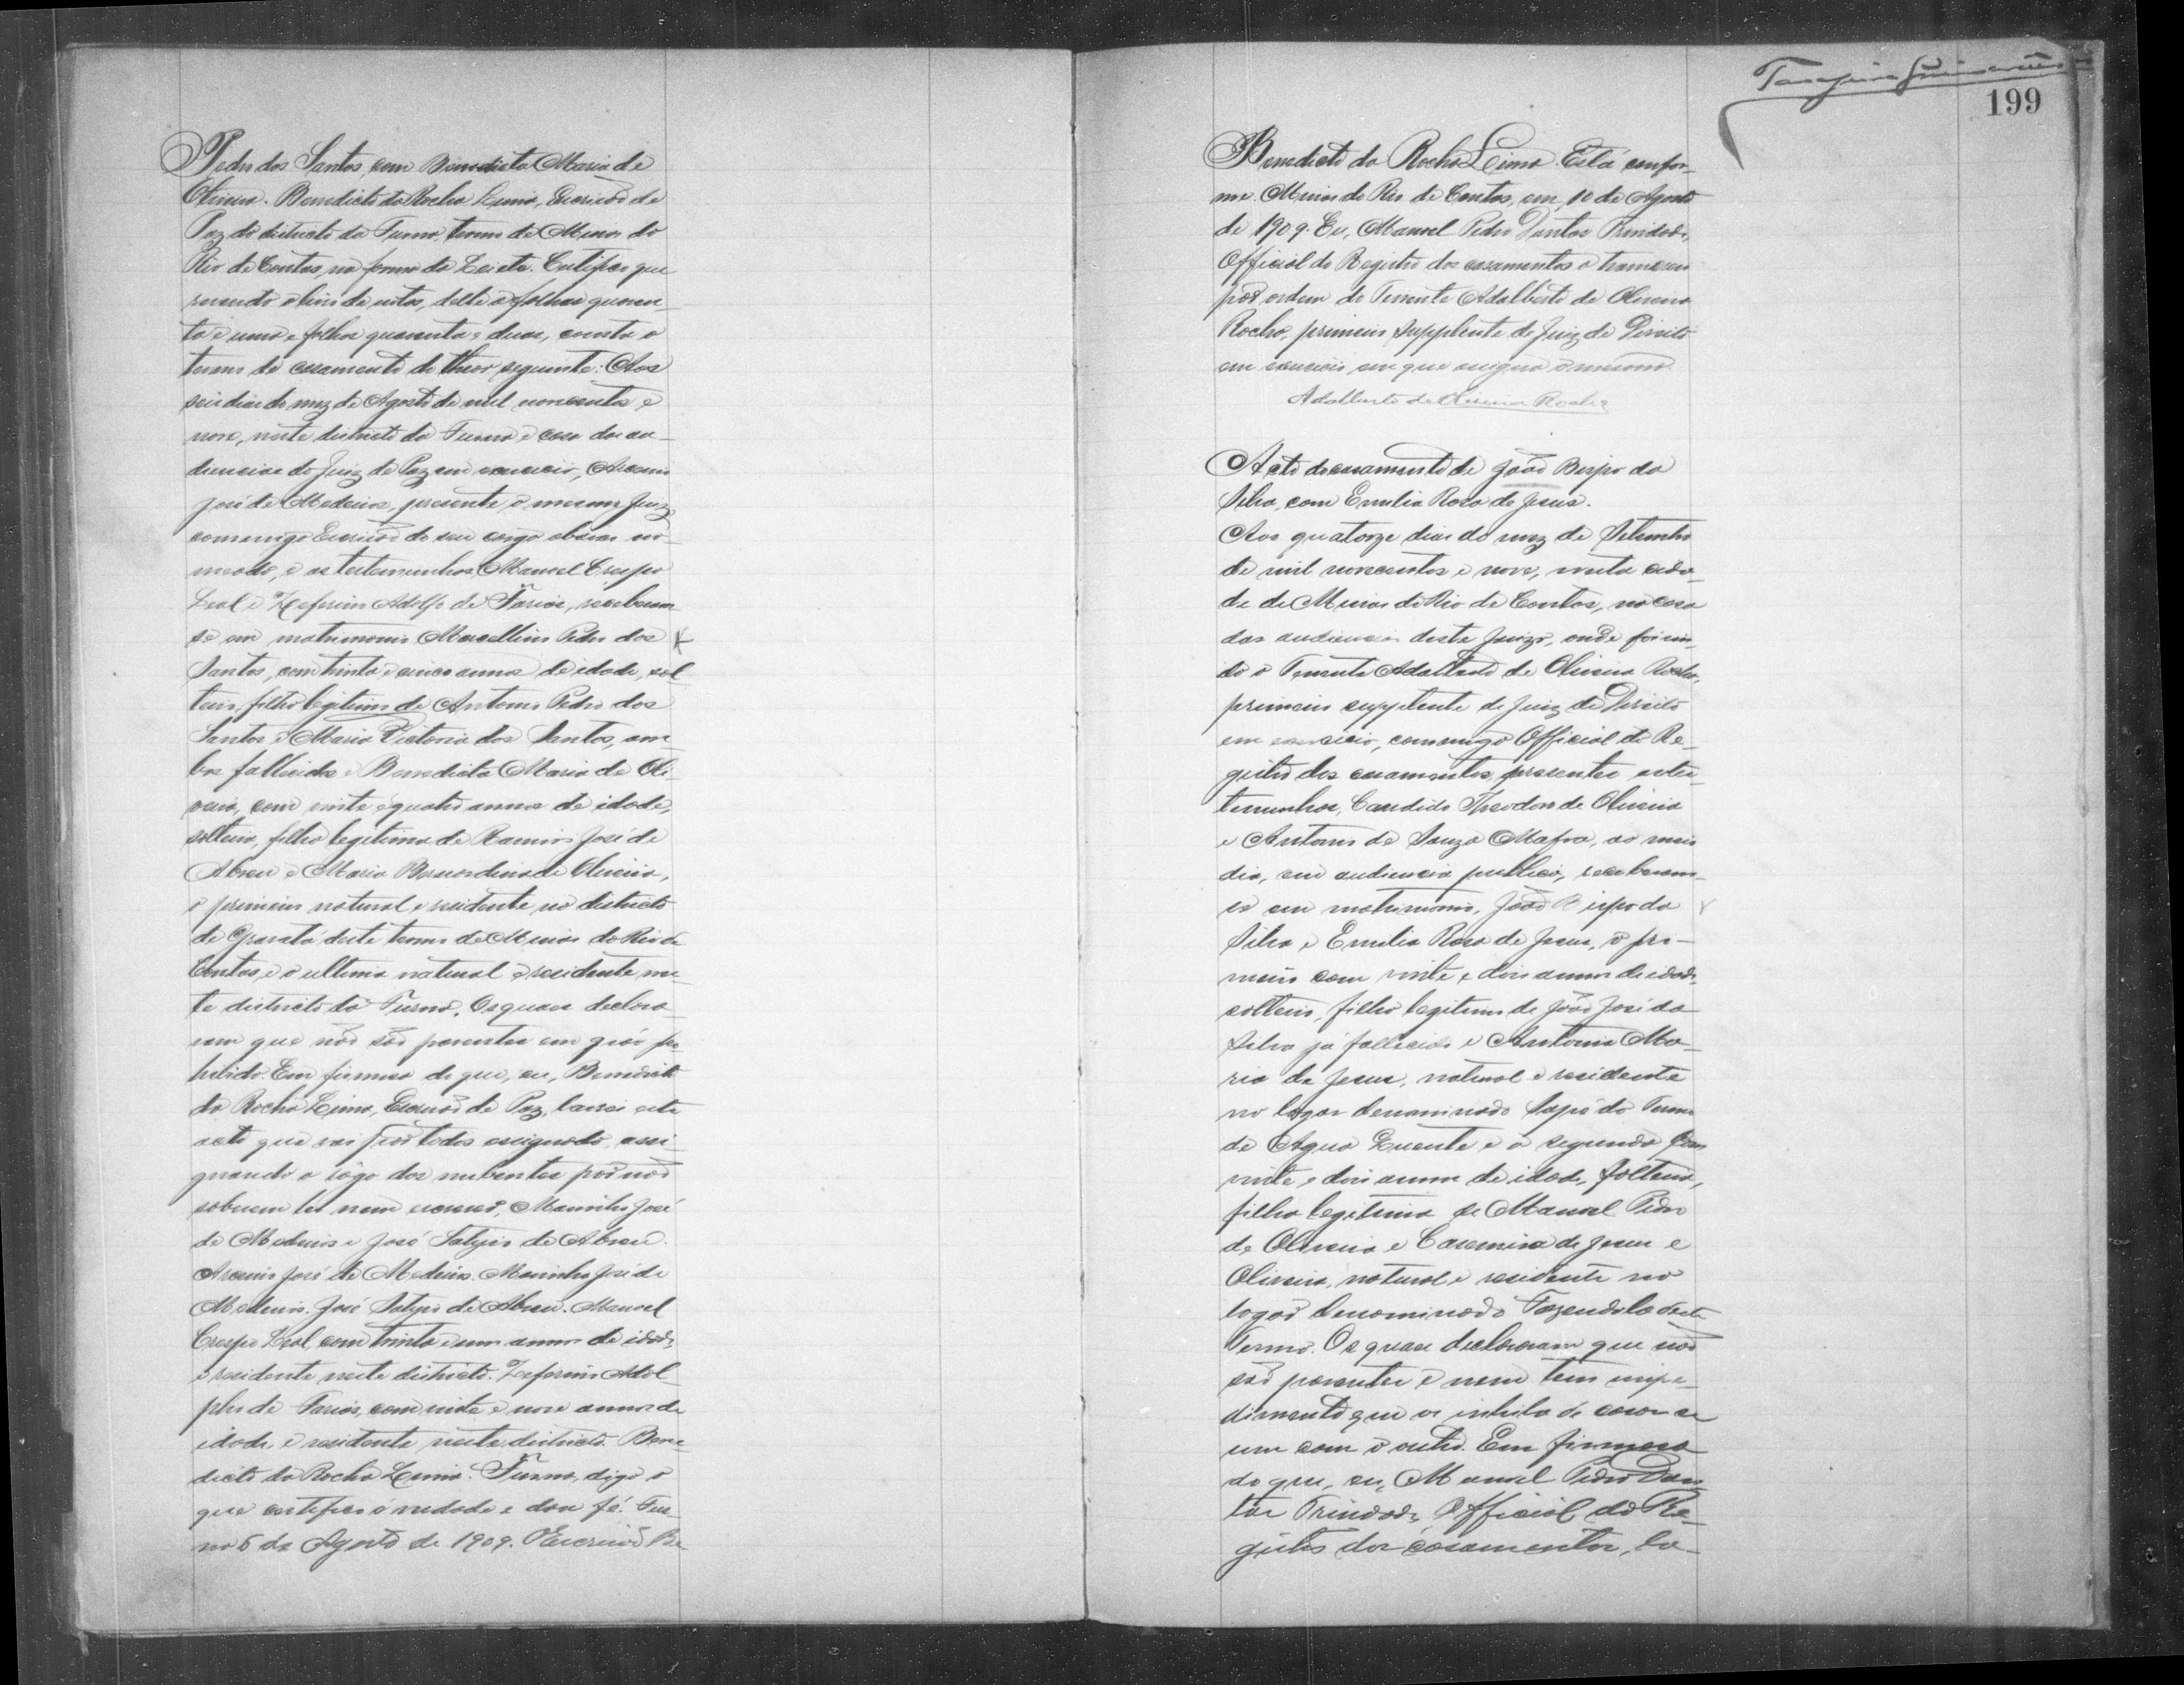 Pedro dos Santos, com Benedicta Maria de
Oliveira. Benedicto da Rocha Lima, Escrivão de
Paz do districto da Furna, termo de Minas do
Rio de Contas, na forma da Lei etc. Certifico que
revendo o livro de notas, delle a folhas quaren-
ta e uma e folhas quarenta e duas, consta o
termo de casamento do theor seguinte: Aos
seis dias do mez de Agosto de mil novecentos e
nove, neste districto da Furna e casa das au-
diencias do Juiz de Paz em exercicio, Arsenio
José de Medeiros, presente o mesmo Juiz
commigo Escrivão do seu cargo abaixo no-
meado, e as testemunhas Manoel Crespo
Leal e Zeferino Adolfo de Farias, receberam
se em matrimonio Marcellino Pedro dos
Santos, com trinta e cinco annos de idade, sol
teiro, filho legitimo de Antonio Pedro dos
Santos e Maria Victoria dos Santos, am
bos fallecidos e Benedicta Maria de Oli
veira, com vinte e quatro annos de idade,
solteira, filha legitima de Ramiro José de
Abreu e Maria Bernardina de Oliveira,
o primeiro natural e residente no districto
de Gravatá deste termo de Minas do Rio de
Contas, e a ultima natural e residente nes-
te districto da Furna. Os quaes declara
ram que não são parentes em gráo pro
hibido. Em firmeza do que, eu, Benedicto
da Rocha Lima, Escrivão de Paz, lavrei este
acto que vai por todos assignado, assi
gnando a rogo dos nubentes por não
saberem ler nem escrever, Marinho José
de Medeiros e José Satyro de Abreu.
Arsenio José de Medeiros. Marinho José de
Medeiros. José Satyro de Abreu. Manoel
Crespo Leal, com trinta e um annos de idade,
e residente neste districto. Zeferino Adol
pho de Farias, com vinte e nove annos de
idade e residente neste districto. Bene
dicto da Rocha Lima. Furna, digo o
que certifico é verdade e dou fé. Fur
na 6 de Agosto de 1909. O Escrivão Be
199
Benedicto da Rocha Lima. Está confor-
me. Minas do Rio de Contas, em 10 de Agosto
de 1909. Eu, Manoel Pedro Dantas Trindade,
Official do Registro dos casamentos o transcrevi
por ordem do Tenente Adalberto de Oliveira
Rocha, primeiro supplente do Juiz de Direito
em exercicio, em que assigna o mesmo.
Adalberto de Oliveira Rocha
Acto de casamento de João Bispo da
Silva, com Emilia Rosa de Jesus.
Aos quatorze dias do mez de Setembro
de mil novecentos e nove, nesta cida-
de de Minas do Rio de Contas, na casa
das audiencias deste Juizo, onde foi vin-
do o Tenente Adalberto de Oliveira Rocha,
primeiro supplente do Juiz de Direito
em exercicio, commigo Official do Re-
gistro dos casamentos, presentes as tes
temunhas, Candido Theodoro de Oliveira
e Antonio de Souza Mafra, ao meio
dia, em audiencia publica, receberam-
se em matrimonio, João Bispo da
Silva e Emilia Rosa de Jesus, o pri-
meiro com vinte e dois annos de idade,
solteiro, filho legitimo de João José da
Silva já fallecido e Antonia Ma-
ria de Jesus, natural e residente
no logar denominado Sapé do Termo
de Agua Quente e a segunda com
vinte e dois annos de idade, solteira,
filha legitima de Manoel Pedro
de Oliveira e Casemira de Jesus e
Oliveira, natural e residente no
logar denominado Fazendola deste
Termo. Os quaes declararam que não
são parentes e nem tem impe-
dimento que os inhiba de casar-se
um com o outro. Em firmeza
do que, eu, Manoel Pedro Dan
tas Trindade, Official do Re-
gistro dos casamentos, la-